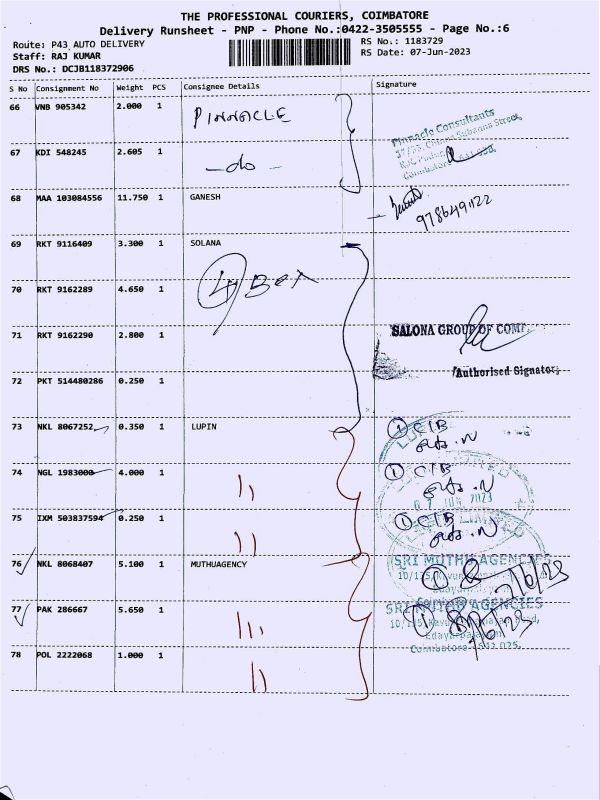 THE PROFESSIONAL COURIERS, COIMBATORE
Delivery Runsheet - PNP - Phone No.:0422-3505555 - Page No.:6
Route: P43 AUTO DELIVERY
RS No.: 1183729
Staff: RAJ KUMAR
RS Date: 07-Jun-2023
DRS No.: DCJB118372906
S No Consignment No Weight PCS Consignee Details Signature
66 VNB 905342 2.000 1 PINNACLE
Pinnacle Consultants
67 KDI 548245 2.605 1 -do-
Coimbatore
68 MAA 103084556 11.750 1 GANESH
69 RKT 9116409 3.300 1 SOLANA
70 RKT 9162289 4.650 1 4 Box
71 RKT 9162290 2.800 1
SALONA GROUP OF COMP.
72 PKT 514480286 0.250 1
Authorised Signator
73 NKL 8067252 0.350 1 LUPIN
① CIB
74 NGL 1983000 4.000 1 11
① CIB
JUN 2023
75 IXM 503837594 0.250 1 11
① CIB
76 NKL 8068407 5.100 1 MUTHUAGENCY
SRI MUTHU AGENCIES
① 7/6/23
77 PAK 286667 5.650 1 11,
SRI MUTHU AGENCIES
① 7/6/23
Edayarpalayam
78 POL 2222068 1.000 1 11
Coimbatore - 641 025.